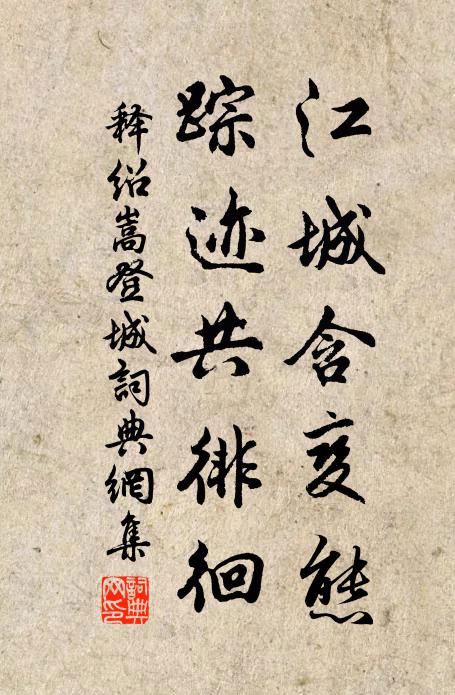 江城含变态
踪迹共徘徊
释绍嵩登城词典網集
詞典网印